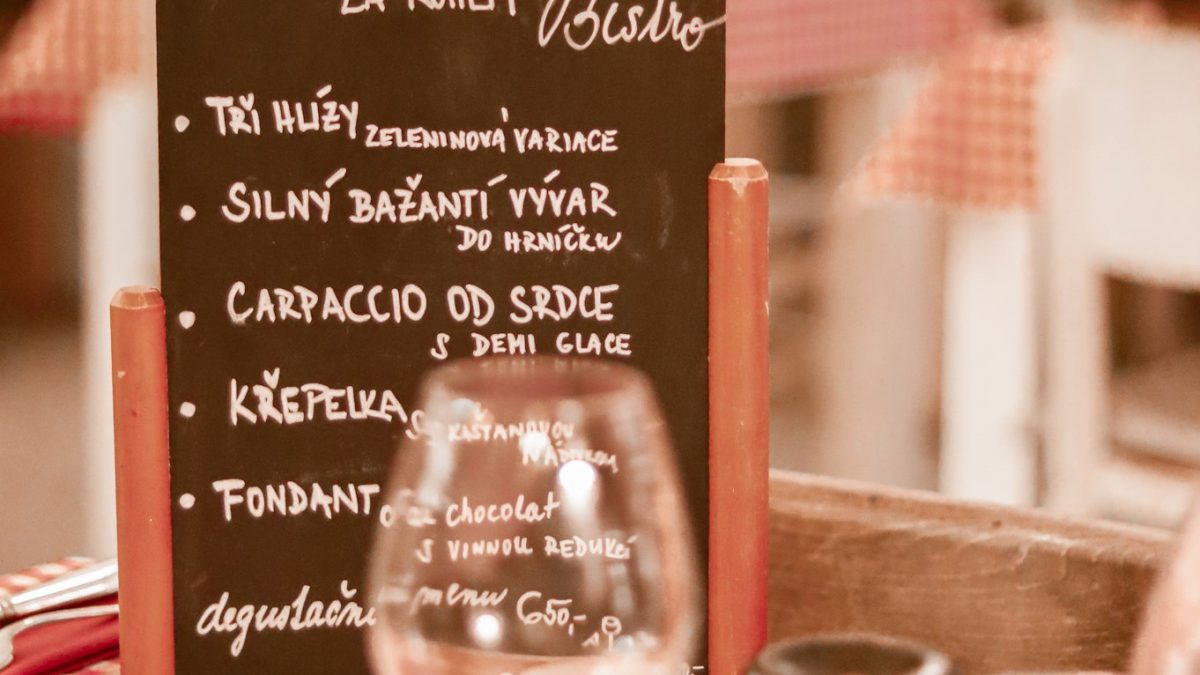 Bistro
• TŘI HLÍZY ZELENINOVÁ VARIACE
• SILNÝ BAŽANTÍ VÝVAR
DO HRNÍČKU
• CARPACCIO OD SRDCE
S DEMI GLACE
• KŘEPELKA S KAŠTANOVOU
NÁDIVKOU
• FONDANT chocolat
S VINNOU REDUKCÍ
degustační menu 650,-